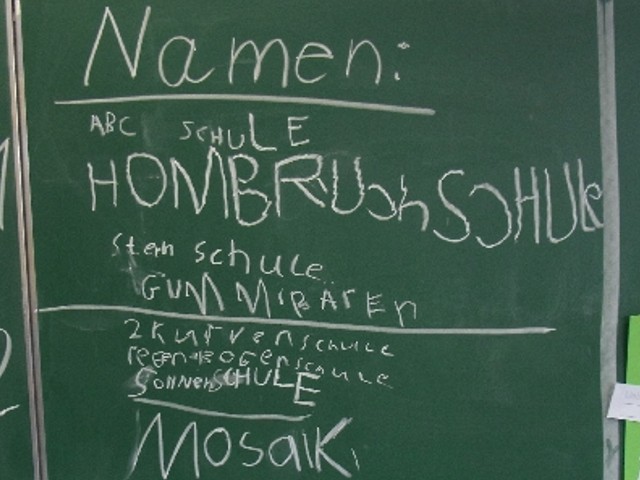 Namen:
ABC SCHULE
HOMBRUchSCHULe
Stern schule
GUMMIBÄrEn
2kurvenschule
regenbogenschule
SonnenSCHULE
MOSaIK